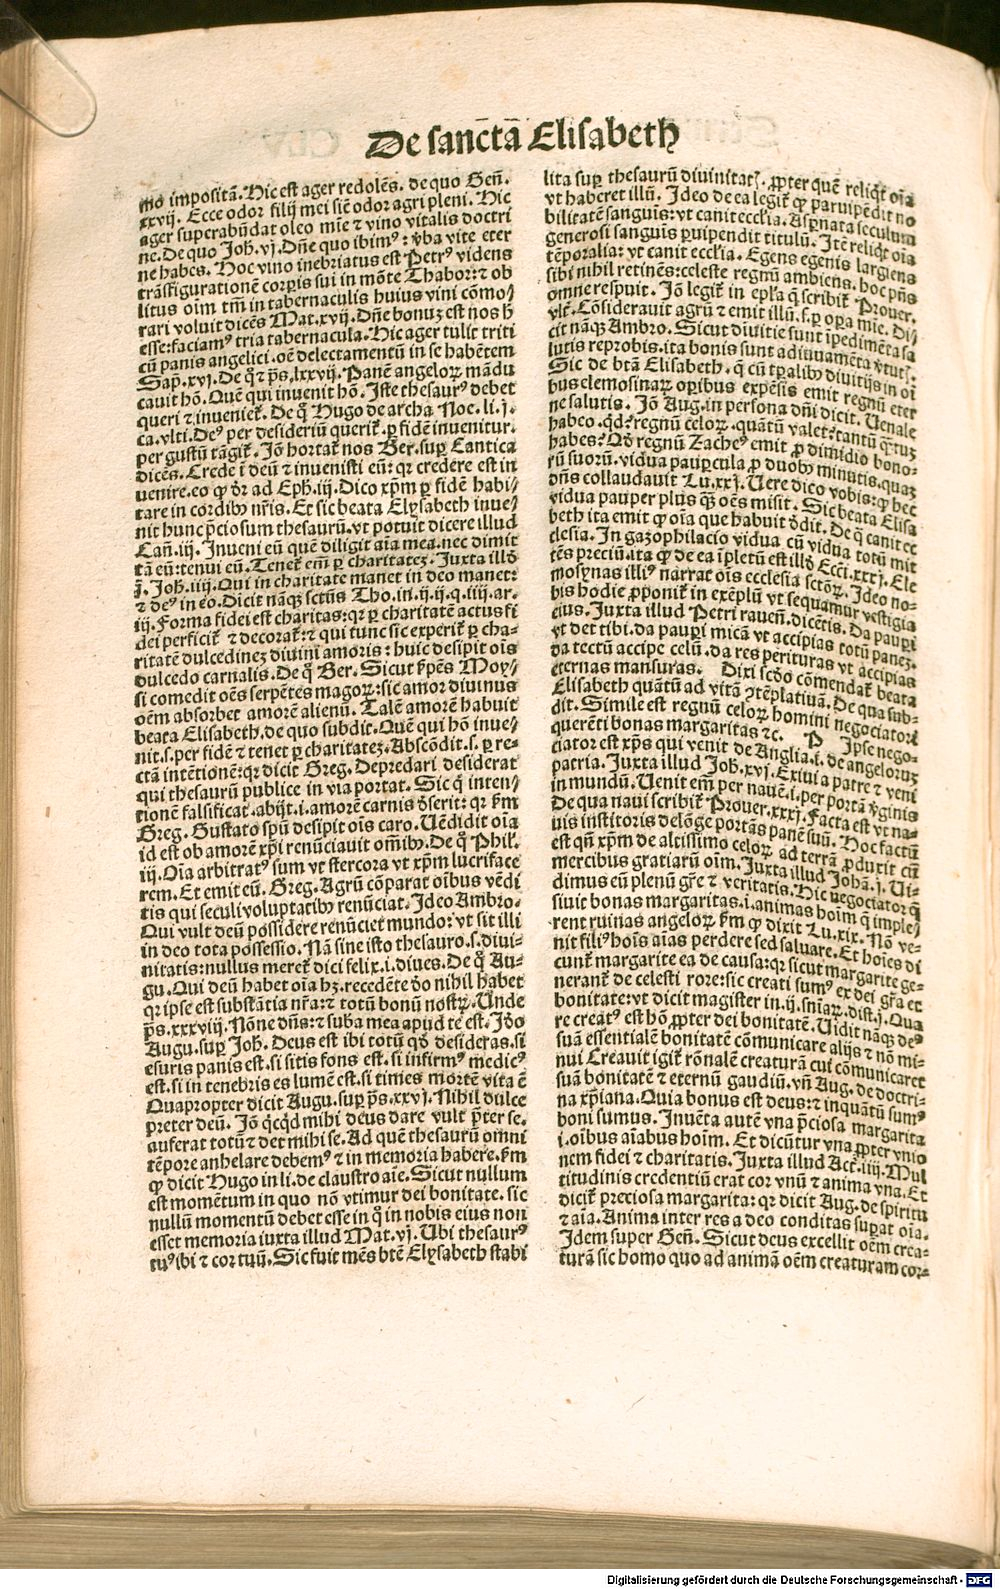 De sanc̄tā Elisabeth
mo impositā. Hic est ager redolēs. de quo Geñ.
xxvij. Ecce odor filij mei sič odor agri pleni. Hic
ager superabūdat oleo mīe ⁊ vino vitalis doctri
ne. De quo Joh. vj. Dñe quo ibimꝰ: v̄ba vite eter
ne habes. Hoc vino inebriatus est Petrꝰ videns
trāsfigurationē corp̄is sui in mōte Thabor: ⁊ ob
litus oīm tm̄ in tabernaculis huius vini cōmo⸗
rari voluit dicēs Mat. xvij. Dñe bonuꝫ est nos h̄
esse: faciamꝰ tria tabernacula. Hic ager tulit triti
cū panis angelici. oē delectamentū in se habētem
Sap̄. xvj. De q̊ ⁊ p̄s. lxxvij. Panē angeloꝝ mādu
cauit hō. Quē qui inuenit hō. Iste thesaurꝰ debet
queri ⁊ inueniet̄. De q̊ Hugo de archa Noe. li. j.
ca. vlti. Deꝰ per desideriū querit̄. ꝑ fidē inuenitur.
per gustū tāgit̄. Jō hortat̄ nos Ber. suꝑ Cantica
dicēs. Crede ī deū ⁊ inuenisti eū: qꝛ credere est in
uenire. eo ꝙ dr̄ ad Eph. iij. Dico xp̄m ꝑ fidē habi⸗
tare in cordibꝰ nr̄is. Et sic beata Elysabeth inue⸗
nit hunc p̄ciosum thesaurū. vt potuit dicere illud
Cañ. iij. Inueni eū quē diligit aīa mea. nec dimit
tā eū: tenui eū. Tenet̄ em̄ ꝑ charitateꝫ. Juxta illđ
j. Joh. iiij. Qui in charitate manet in deo manet:
⁊ deꝰ in eo. Dicit nāqꝫ sctūs Tho. in. ij. ij. q. iiij. ar.
iij. Forma fidei est charitas: qꝛ ꝑ charitatē actus fi
dei perficit̄ ⁊ decorat̄: ⁊ qui tunc sic experit̄ ꝑ cha⸗
ritatē dulcedineꝫ diuini amoris: huic desipit oīs
dulcedo carnalis. De q̊ Ber. Sicut s̄pēs Moy⸗
si comedit oēs serpētes magoꝝ: sic amor diuinus
oēm absorbet amorē alienū. Talē amorē habuit
beata Elisabeth. de quo subdit. Quē qui hō inue⸗
nit. s. per fidē ⁊ tenet ꝑ charitateꝫ. Abscōdit. s. ꝑ re⸗
ctā intētionē: qꝛ dicit Greg. Depredari desiderat
qui thesaurū publice in via portat. Sic q̇ inten⸗
tionē falsificat. abijt. i. amorē carnis đserit: qꝛ ẜm
Greg. Gustato sp̄u desipit oīs caro. Uēdidit oīa
id est ob amorē xp̄i renūciauit omībꝰ. De q̊ Phil̄.
iij. Oīa arbitratꝰ sum vt stercora vt xp̄m lucriface
rem. Et emit eū. Greg. Agrū cōparat oībus vēdi
tis qui seculi voluptatibꝰ renūciat. Ideo Ambro.
Qui vult deū possidere renūciet mundo: vt sit illi
in deo tota possessio. Nā sine isto thesauro. s. diui⸗
nitatis: nullus meret̄ dici felix. i. diues. De q̊ Au⸗
gu. Qui deū habet oīa hꝫ. recedēte đo nihil habet
qꝛ ipse est substātia nr̄a: ⁊ totū bonū nostꝝ. Unde
p̄s. xxxviij. Nōne dn̄s: ⁊ suba mea apud te est. Jđo
Augu. suꝑ Joh. Deus est ibi totū qđ desideras. si
esuris panis est. si sitis fons est. si infirmꝰ medicꝰ
est. si in tenebris es lumē est. si times mortē vita ē
Quapropter dicit Augu. suꝑ p̄s. xxvj. Nihil dulce
preter deū. Jō q̇cq̇d mihi deus dare vult p̄ter se.
auferat totū ⁊ det mihi se. Ad quē thesaurū omni
tēpore anhelare debemꝰ ⁊ in memoria habere. ẜm
ꝙ dicit Hugo in li. de claustro aīe. Sicut nullum
est momētum in quo nō vtimur dei bonitate. sic
nullū momentū debet esse in q̊ in nobis eius non
esset memoria iuxta illud Mat. vj. Ubi thesaurꝰ
tuꝰ ibi ⁊ cor tuū. Sic fuit mēs btē Elysabeth stabi
lita suꝑ thesaurū diuinitatꝭ. ꝓpter quē reliq̇t oīa
vt haberet illū. Ideo de ea legit̄ ꝙ paruipēdit no
bilitatē sanguīs: vt canit eccl̄ia. Asp̄nata seculum
generosi sanguīs ꝑuipendit titulū. Itē reliq̇t oīa
tēporalia: vt canit eccl̄ia. Egens egenis largiens
sibi nihil retinēs: celeste regnū ambiens. hoc p̄ns
omne respuit. Jō legit̄ in epl̄a q̄ scribit̄ Prouer.
vlt̄. Cōsiderauit agrū ⁊ emit illū. s. ꝑ oꝑa mīe. Di⸗
cit nāqꝫ Ambro. Sicut diuitie sunt īpedimēta sa
lutis reprobis. ita bonis sunt adiuuamēta v̄tutꝭ.
Sic de btā Elisabeth. q̄ cū tꝑalibꝰ diuitijs in oī
bus elemosinaꝝ oꝑibus expēsis emit regnū eter
ne salutis. Jō Aug. in persona dn̄i dicit. Uenale
habeo. qđ? regnū celoꝝ. quātū valet? tantū q̄tuꝫ
habes? Qđ regnū Zacheꝰ emit ꝓ dimidio bono⸗
rū suorū. vidua pauꝑcula ꝓ duobꝰ minutis. quaꝫ
dn̄s collaudauit Lu. xxj. Uere dico vobis: ꝙ hec
vidua pauper plus q̄ꝫ oēs misit. Sic beata Elisa
beth ita emit ꝙ oīa que habuit đdit. De q̄ canit ec
clesia. In gazophilacio vidua cū vidua totū mit
tēs preciū. ita ꝙ de ea īpletū est illđ Ecci. xxxj. Ele
mosynas illiꝰ narrat oīs ecclesia sctōꝝ. Ideo no⸗
bis hodie ꝓponit̄ in exēplū vt sequamur vestigia
eius. Juxta illud Petri raueñ. dicētis. Da pauꝑi
vt det tibi. da pauꝑi micā vt accipias totū paneꝫ.
da tectū accipe celū. da res perituras vt accipias
eternas mansuras. Dixi scđo cōmendat̄ beata
Elisabeth quātū ad vitā ꝯtēplatiuā. De qua sub⸗
dit. Simile est regnū celoꝝ homini negociatori
querēti bonas margaritas ⁊c. P Ipse nego⸗
ciator est xp̄s qui venit de Anglia. i. de angeloruꝫ
patria. Juxta illud Joh. xvj. Exiui a patre ⁊ veni
in mundū. Uenit em̄ per nauē. i. per portā v̄ginis
De qua naui scribit̄ Prouer. xxxj. Facta est vt na⸗
uis institoris delōge portās panē suū. Hoc factū
est qñ xp̄m de altissimo celoꝝ ad terrā ꝓduxit cū
mercibus gratiarū oīm. Juxta illud Johā. j. Ui⸗
dimus eū plenū gr̄e ⁊ veritatis. Hic negociator q̄
siuit bonas margaritas. i. animas hoīm q̄ imple⸗
rent ruinas angeloꝝ ẜm ꝙ dixit Lu. xix. Nō ve⸗
nit filiꝰ hoīs aīas perdere sed saluare. Et hoīes di
cunt̄ margarite ea de causa: qꝛ sicut margarite ge⸗
nerant̄ de celesti rore: sic creati sumꝰ ex dei gr̄a et
bonitate: vt dicit magister in. ij. sn̄iaꝝ. dist. j. Qua
re creatꝰ est hō ꝓpter dei bonitatē. Uidit nāqꝫ deꝰ
suā essentialē bonitatē cōmunicare alijs ⁊ nō mi⸗
nui Creauit igit̄ rōnalē creaturā cui cōmunicaret
suā bonitatē ⁊ eternū gaudiū. vñ Aug. de doctri⸗
na xp̄iana. Quia bonus est deus: ⁊ inquātū sumꝰ
boni sumus. Inuēta autē vna p̄ciosa margarita
. i. oībus aīabus hoīm. Et dicūtur vna ꝓpter vnio
nem fidei ⁊ charitatis. Juxta illud Act̄. iiij. Mul
titudinis credentiū erat cor vnū ⁊ anima vna. Et
dicit̄ preciosa margarita: qꝛ dicit Aug. de spiritu
⁊ aīa. Anima inter res a deo conditas suꝑat oīa.
Idem super Geñ. Sicut deus excellit oēm crea⸗
turā sic homo quo ad animā oēm creaturam cor⸗
Digitalisierung gefördert durch die Deutsche Forschungsgemeinschaft - DFG